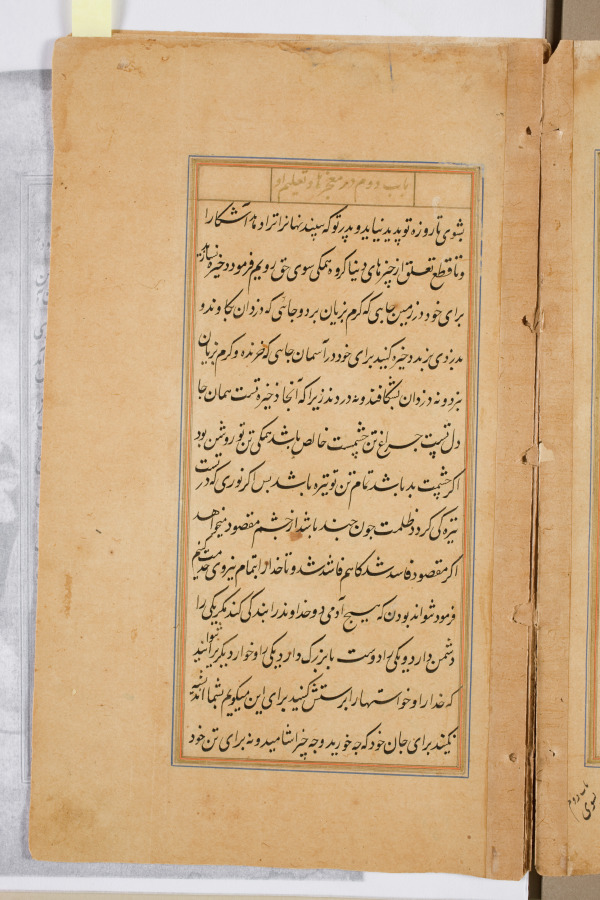 باب دوم در معجزها و تعلیم او
بشوی تا روزه تو پدید نیاید و پدر تو که بیند نهانرا ترا دهد آشکارا
و تا قطع تعلق از چیزهای دنیا کرده همکی سوی حق رویم فرمود ذخیره نسازید
برای خود در زمین جایی که کرم بزیان برد و جائی که دزدان بکاوند و
بدزدی برند ذخیره کنید برای خود در آسمان جایی که خرنده و کرم بزیان
نبرد و نه دزدان بشکافند و نه دزدند زیرا که آنجا ذخیره تست همان جا
دل تست چراغ تن چشمست خالص باشد همکی تن تو روشن بود
اکر چشمت بد باشد تمام تن تو تیره باشد پس اکر نوری که در تست
تیره کی کردد ظلمت چون چند باشد از چشم مقصود میخواهد
اکر مقصود فاسد شد کار هم فاسد شد و تا خدا را بتمام نیروی خدمت کنیم
فرمود نتواند بودن که هیچ آدمی دو خداوند را بندکی کند مکر یکی را
دشمن دارد و یکی را دوست یا بزرک دارد یکی را و خوار دیکر را نتوانید
که خدا را و خواستها را پرستش کنید برای این میکویم شما را اندیشه
نکنید برای جان خود که چه خورید و چه چیز اشامید و نه برای تن خود
باب دوم
بشوی